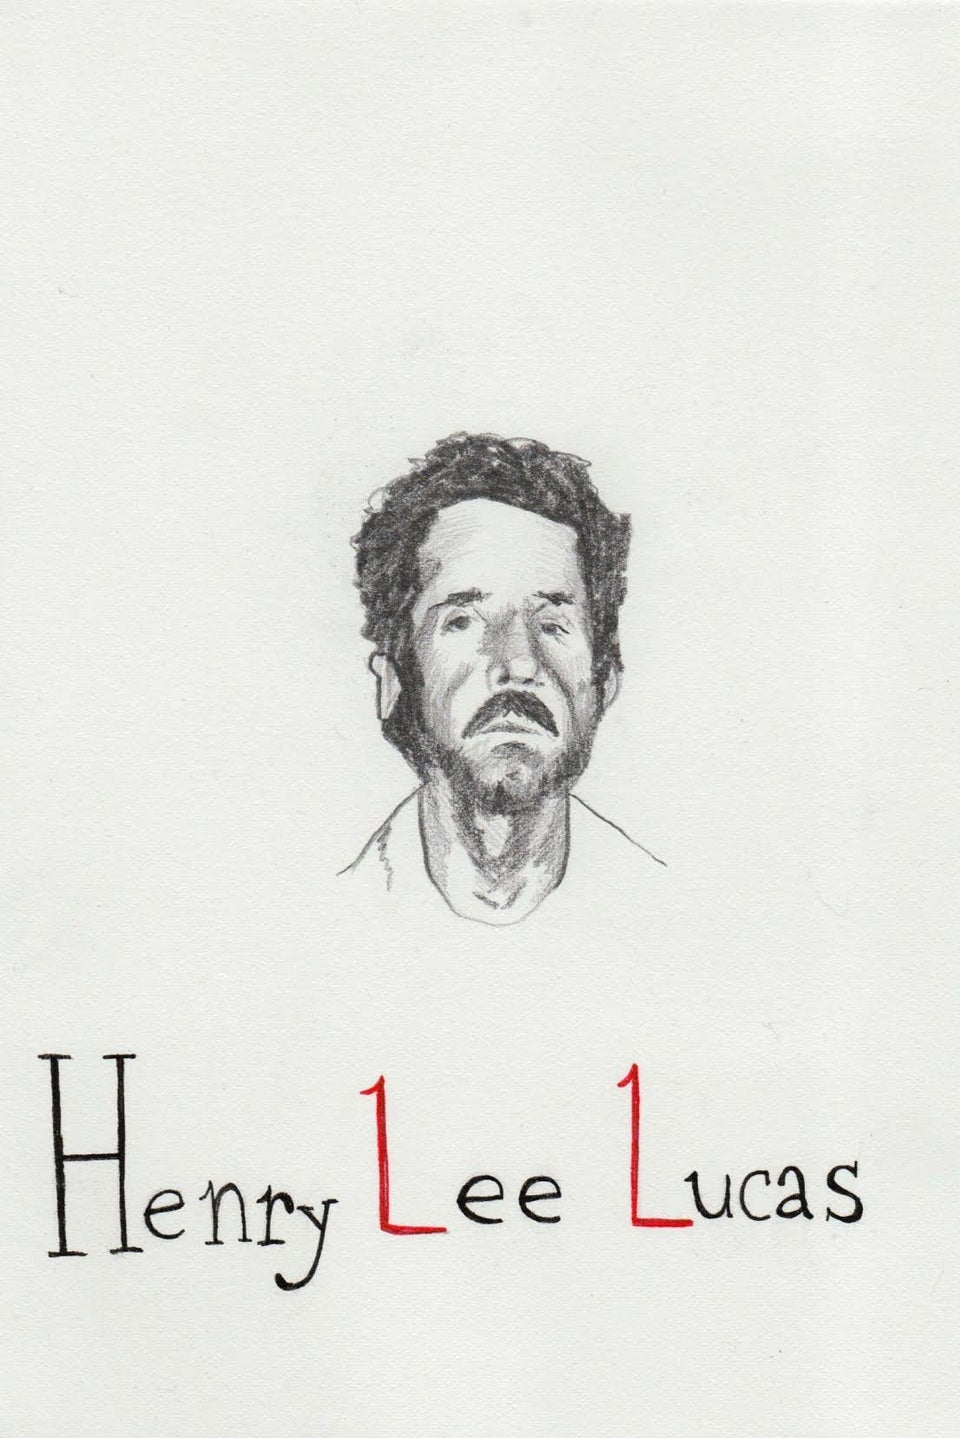 Henry Lee Lucas